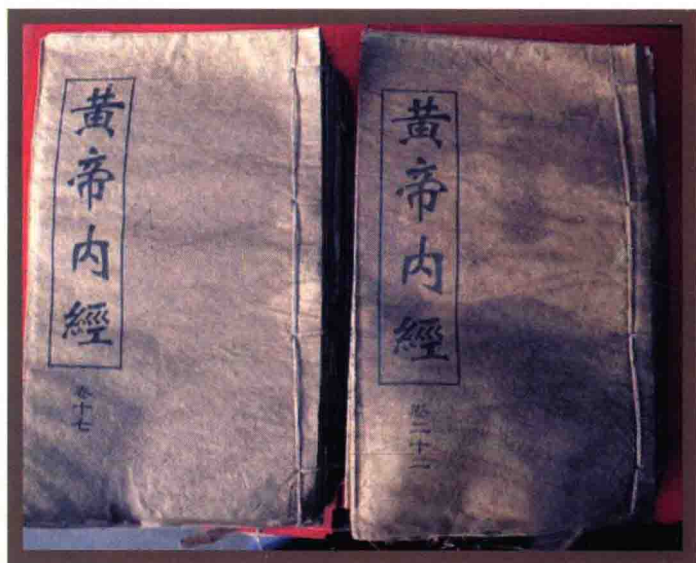 黄帝内經
卷十七
黄帝内經
卷二十二